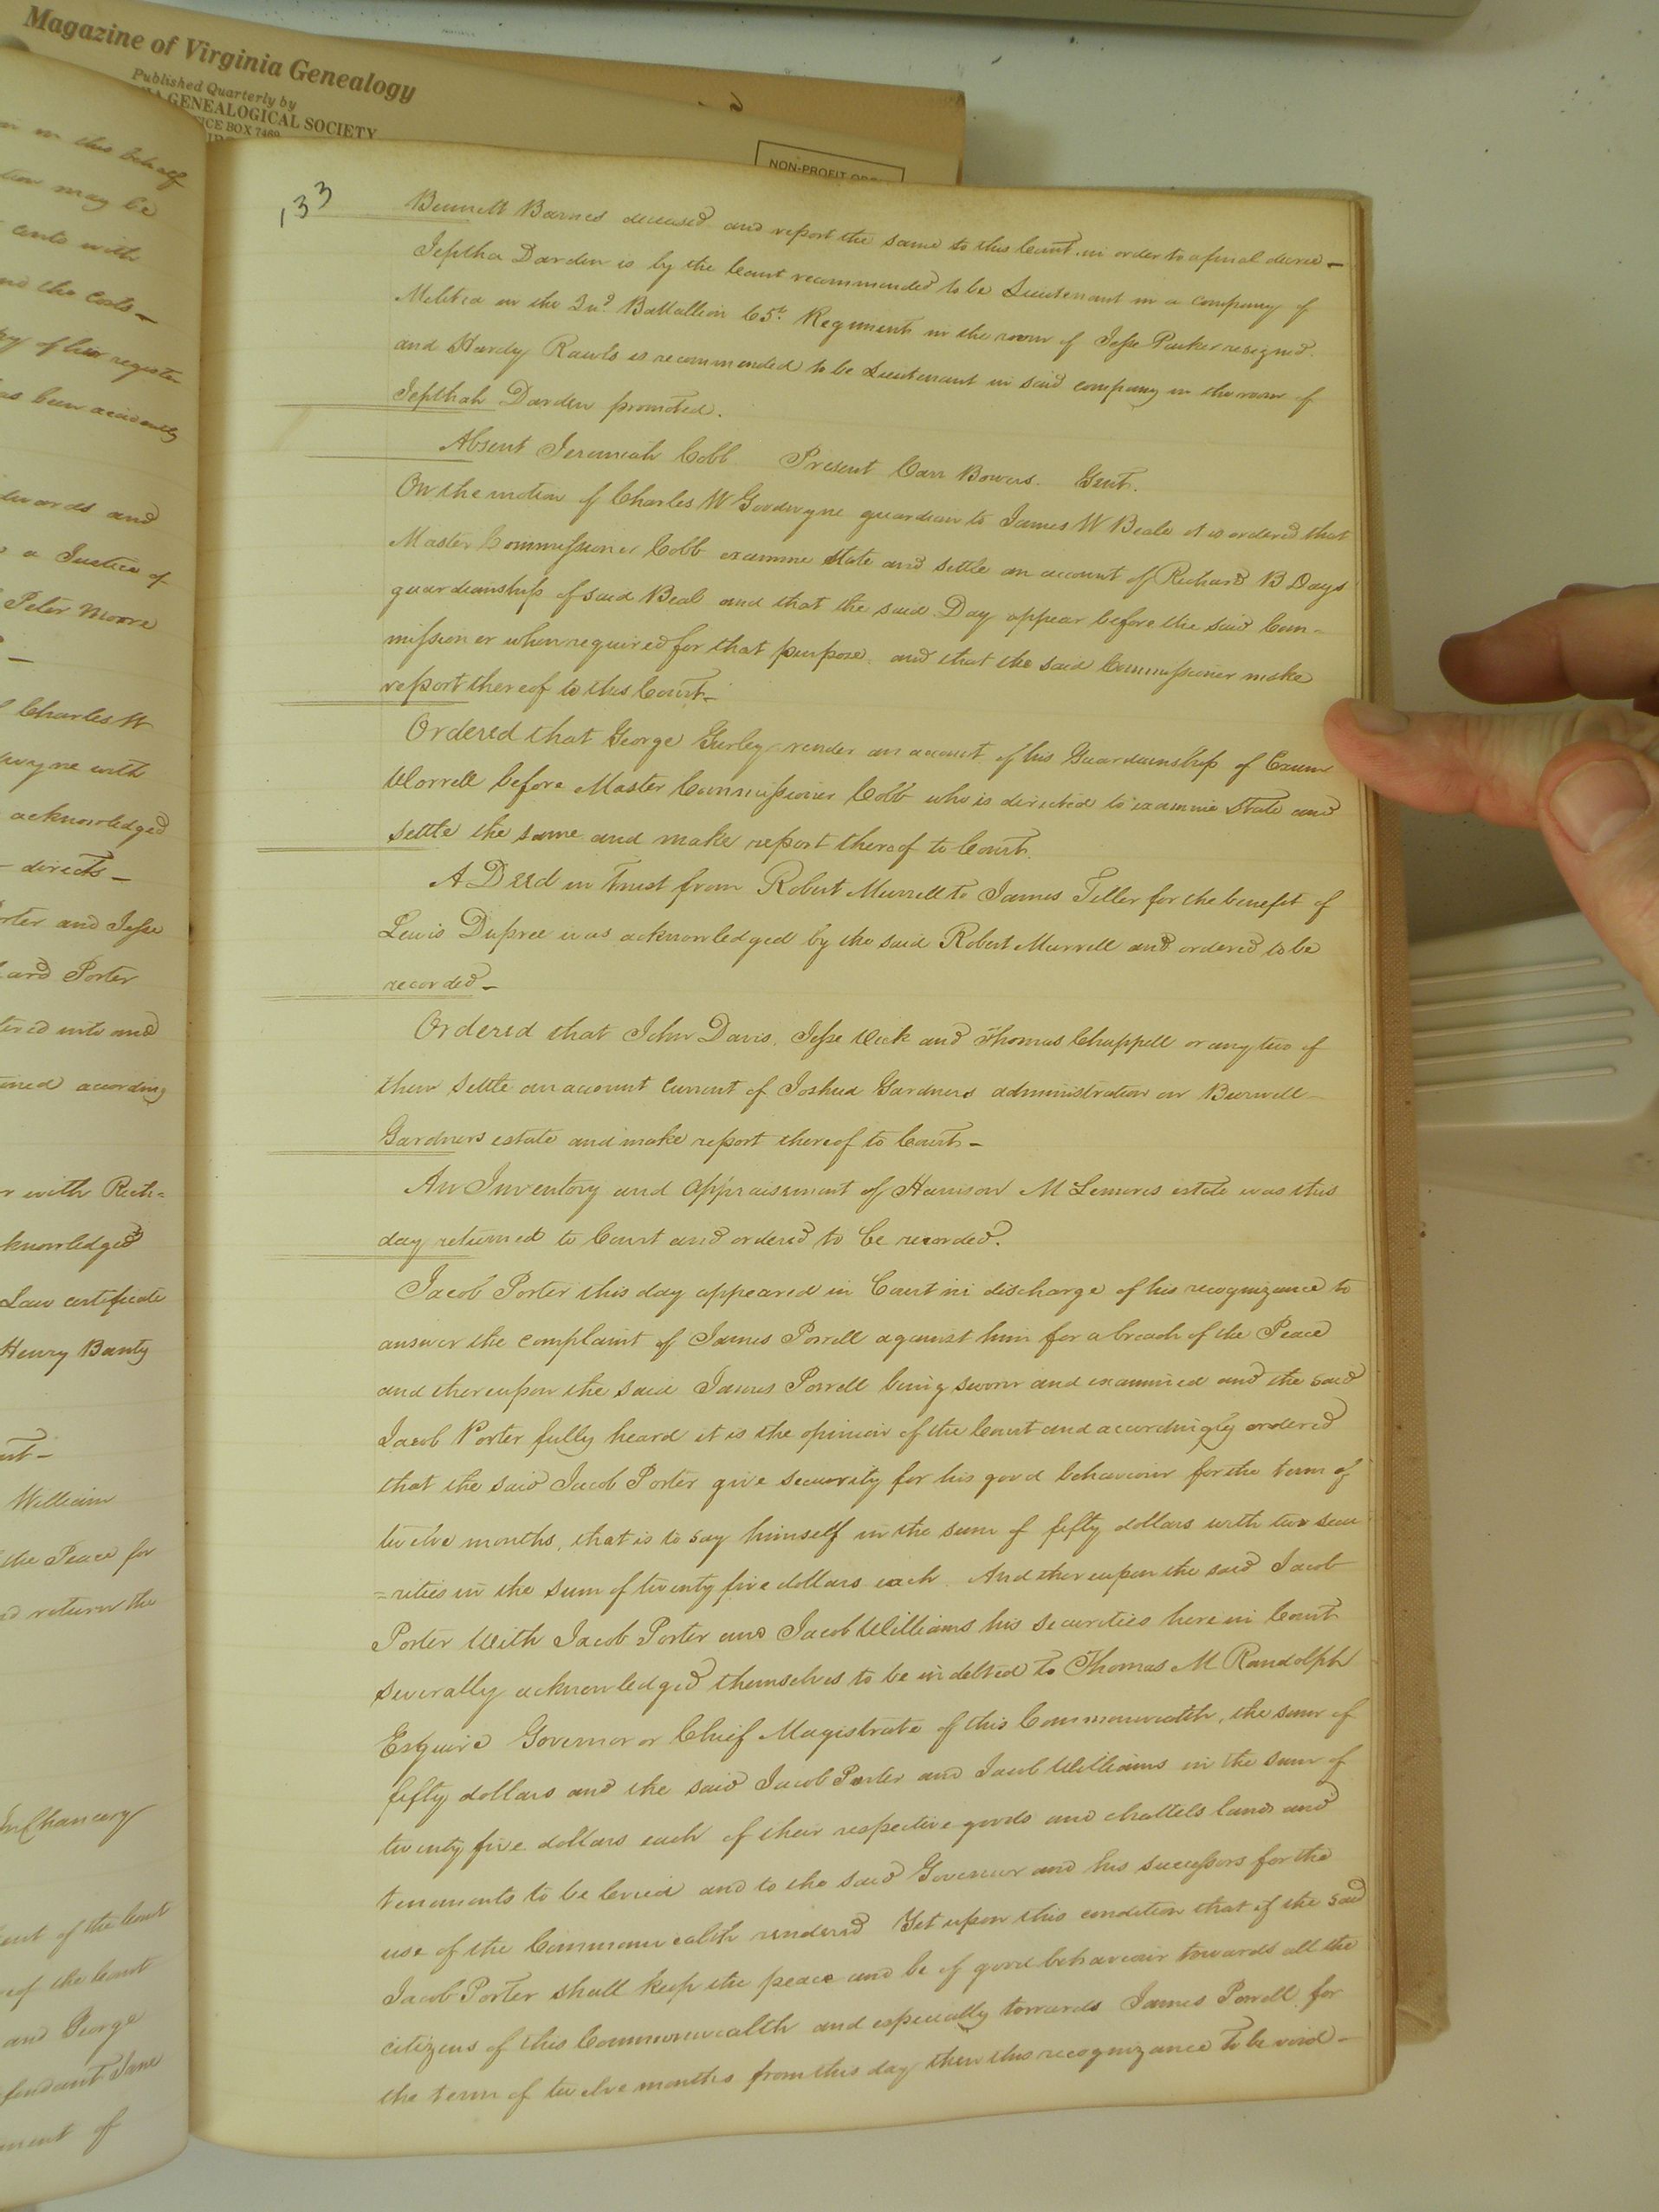 Magazine of Virginia Genealogy
Published Quarterly by
GENEALOGICAL SOCIETY
ICE BOX 7469
NON-PROFIT ORG
in this behalf
may be
with
the Costs
of his register
as been accidentally
and
a Justice of
Peter Moore
Charles W
wyne with
acknowledged
directs
rter and Jesse
ard Porter
tered into and
according
r with Rich=
knowledged
Law certificate
Henry Banty
William
the Peace for
return the
In Chancery
of the Court
of the Court
and George
fendant Jane
ment of
133
Bennett Barnes deceased and report the same to this Court in order to a final decree
Jeptha Darden is by the Court recommended to be Lieutenant in a company of
Militia in the 2nd Battallion 65th Regiment in the room of Jesse Parker resigned.
and Hardy Rawls is recommended to be Lieutenant in said company in the room of
Jepthah Darden promoted.
Absent Jeremiah Cobb Present Carr Bowers. Gent.
On the motion of Charles W Goodwyne guardian to James W Beale it is ordered that
Master Commissioner Cobb examine state and settle an account of Richard B Days
guardianship of said Beal and that the said Day appear before the said Com-
missioner when required for that purpose and that the said Commissioner make
report thereof to this Court
Ordered that George Gurley render an account of his Guardianship of Exum
Worrell before Master Commissioner Cobb who is directed to examine State and
settle the same and make report thereof to Court.
A Deed in Trust from Robert Murrell to James Teller for the benefit of
Lewis Dupree was acknowledged by the said Robert Murrell and ordered to be
recorded
Ordered that John Davis, Jesse Vick and Thomas Chappell or any two of
them settle an account Current of Joshua Gardners administration on Burwell
Gardners estate and make report thereof to Court
An Inventory and appraisement of Harrison M Lemores estate was this
day returned to Court and ordered to be recorded.
Jacob Porter this day appeared in Court in discharge of his recognizance to
answer the complaint of James Powell against him for a breach of the Peace
and thereupon the said James Powell being sworn and examined and the said
Jacob Porter fully heard it is the opinion of the Court and accordingly ordered
that the said Jacob Porter give security for his good behaviour for the term of
twelve months, that is to say himself in the sum of fifty dollars with two secu
=rities in the sum of twenty five dollars each. And thereupon the said Jacob
Porter With Jacob Porter and Jacob Williams his securities here in Court
severally acknowledged themselves to be indebted to Thomas M Randolph
Esquire Governor or Chief Magistrate of this Commonwealth, the sum of
fifty dollars and the said Jacob Porter and Jacob Williams in the sum of
twenty five dollars each of their respective goods and chattels lands and
tenements to be levied and to the said Governor and his successors for the
use of the Commonwealth rendered Yet upon this condition that if the said
Jacob Porter shall keep the peace and be of good behaviour towards all the
citizens of this Commonwealth and especially towards James Powell for
the term of twelve months from this day then this recognizance to be void